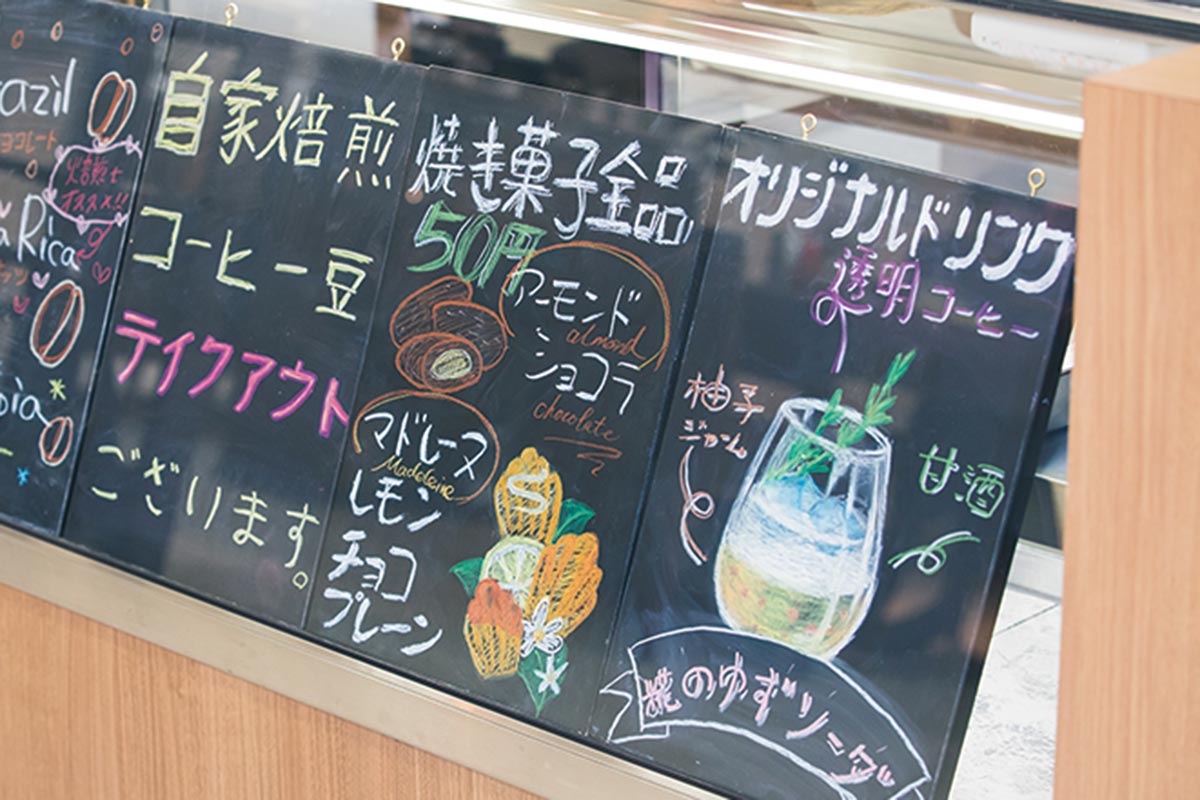 azil
ョコレート
焙煎士
オススメ!!
aRica
bia
自家焙煎
コーヒー豆
テイクアウト
ございます。
焼き菓子全品
50円
アーモンド
almond
ショコラ
chocolate
マドレーヌ
Madeleine
レモン
チョコ
プレーン
オリジナルドリンク
透明コーヒー
柚子
ジャム
甘酒
糀のゆずソーダ